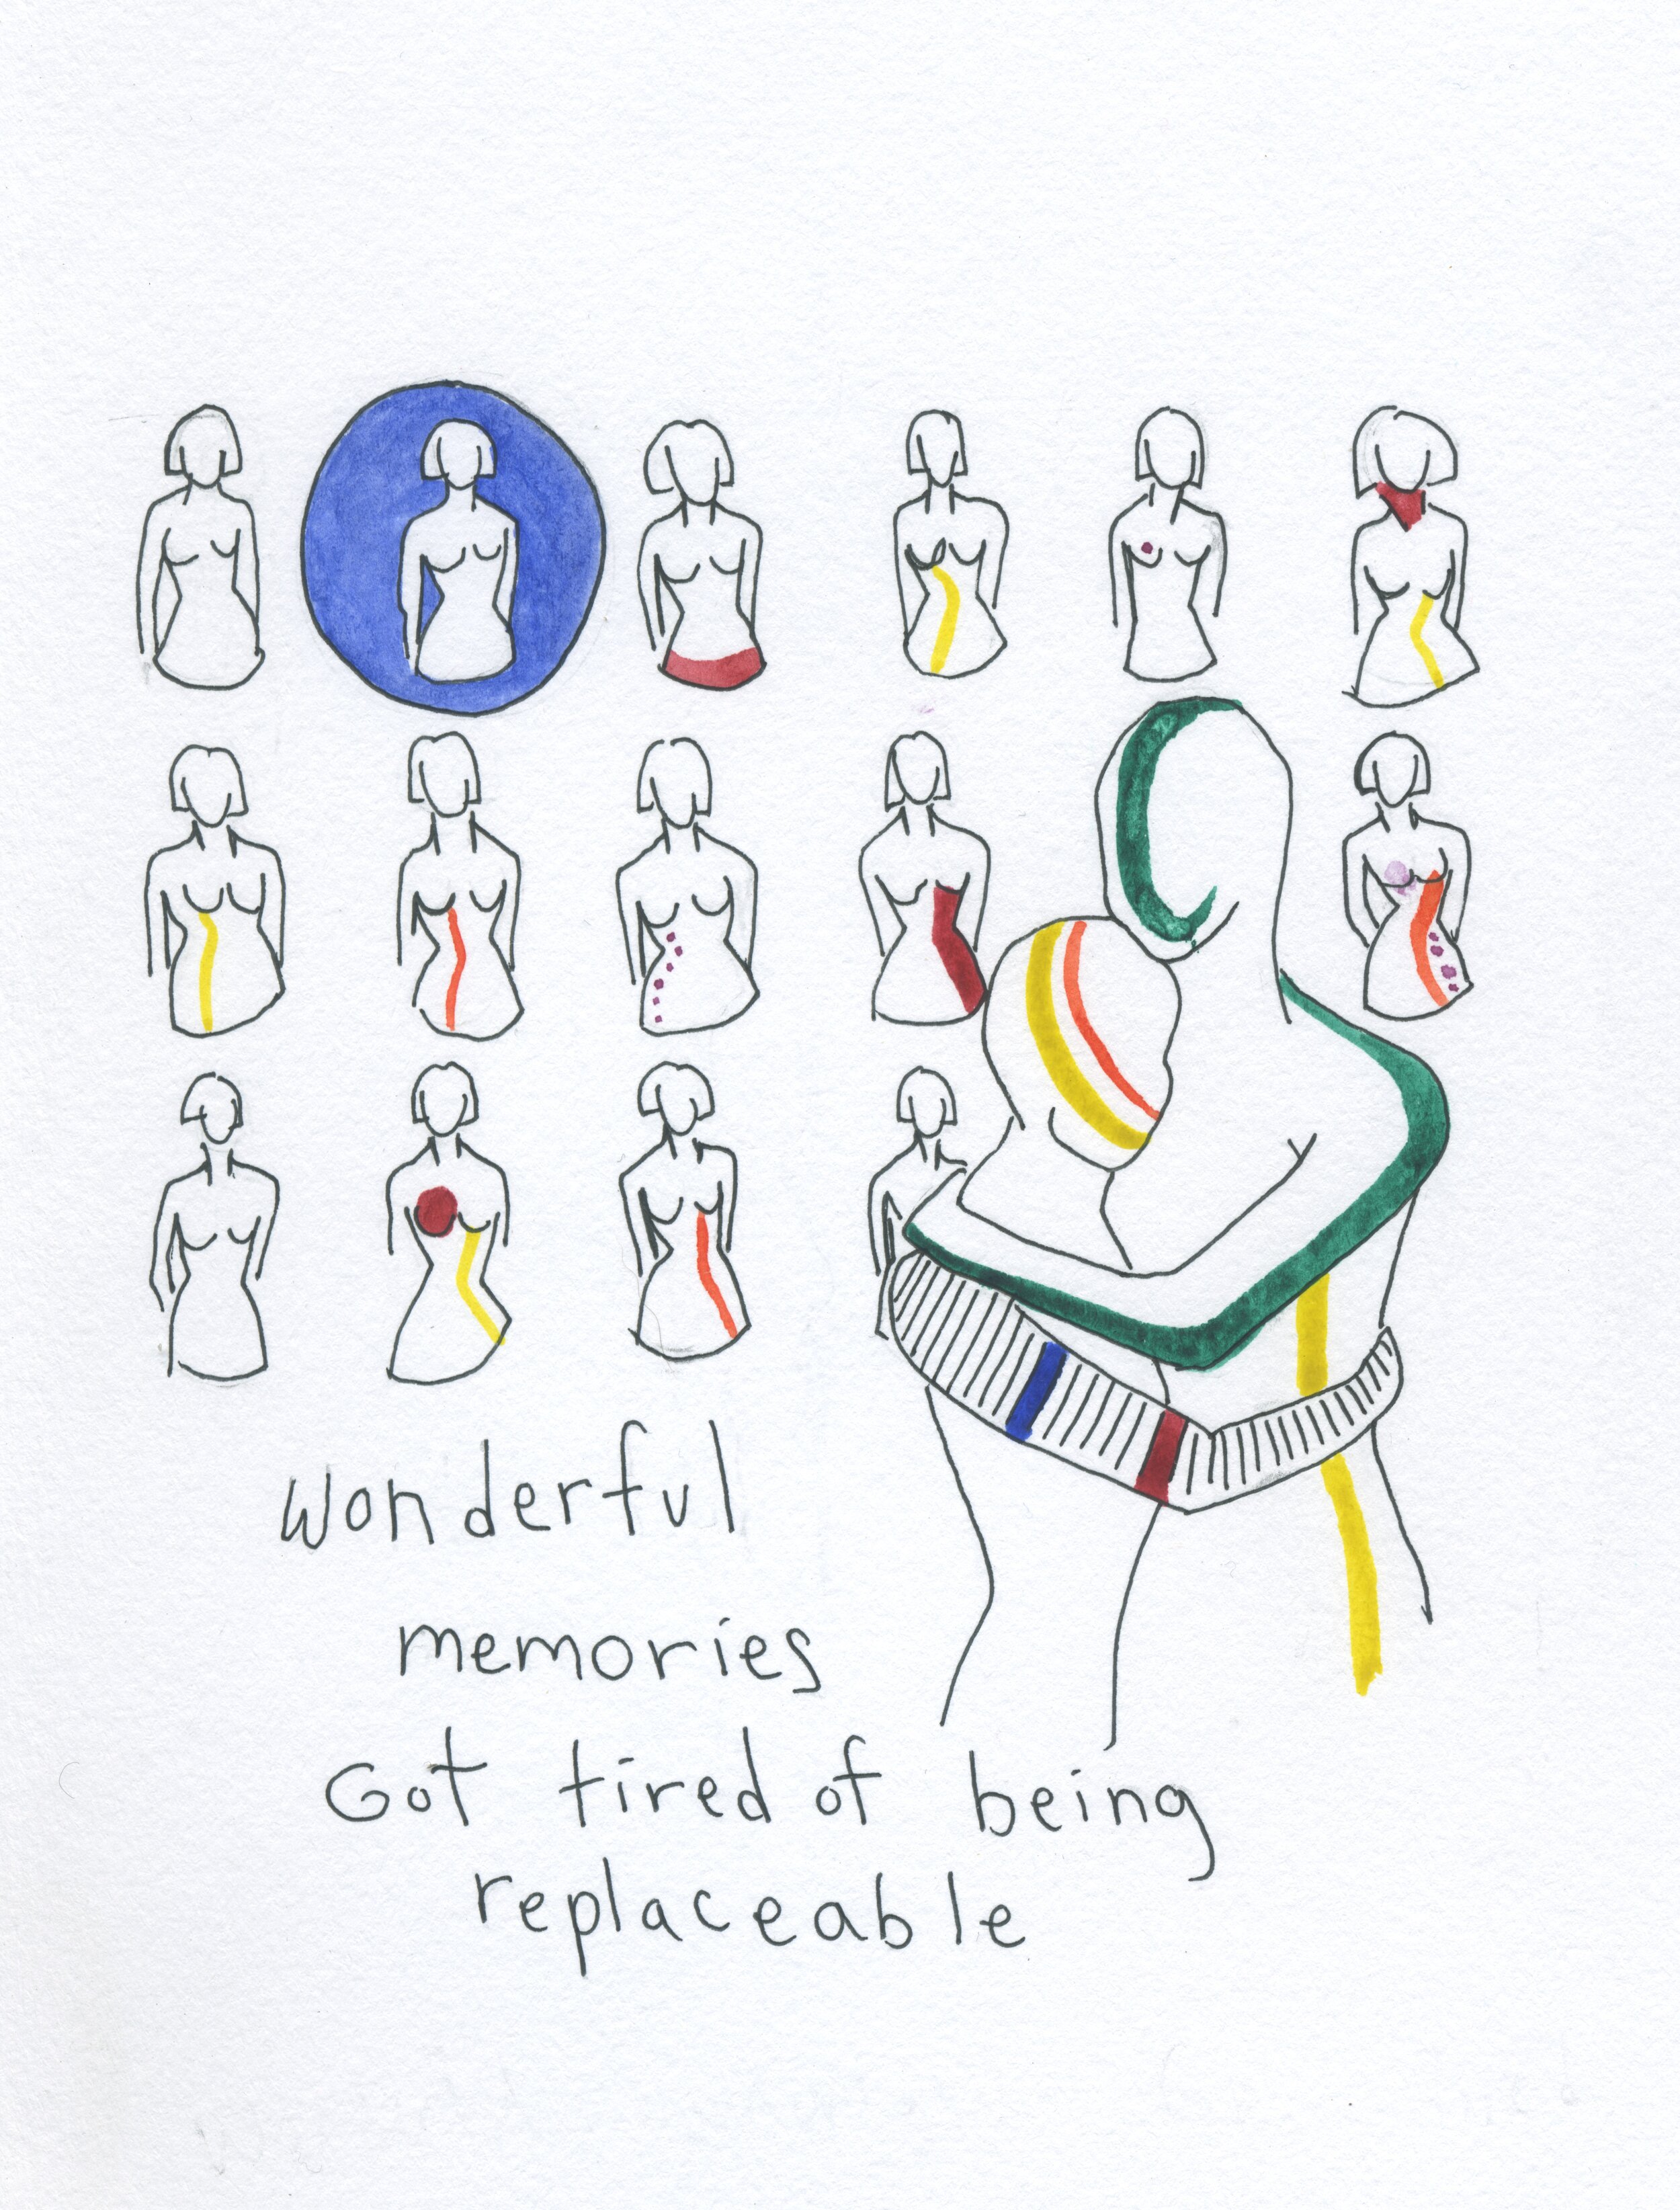 wonderful
memories
Got tired of being
replaceable